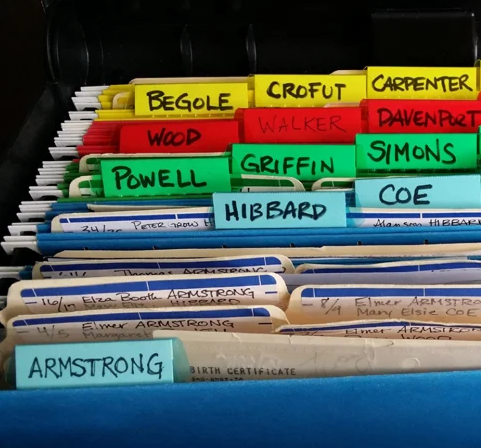 BEGOLE
CROFUT
CARPENTER
WOOD
WALKER
DAVENPORT
POWELL
GRIFFIN
SIMONS
HIBBARD
COE
34/35 PETER
Alanson HIBBAR
Thomas ARMSTRONG
16/17 Elza Booth ARMSTRONG
HIBBARD
8/9 Elmer ARMSTRO
Mary Elsie COE
4/5 Elmer ARMSTRONG
Margaret
Elmer ARMSTRO
WOOD
ARMSTRONG
BIRTH CERTIFICATE